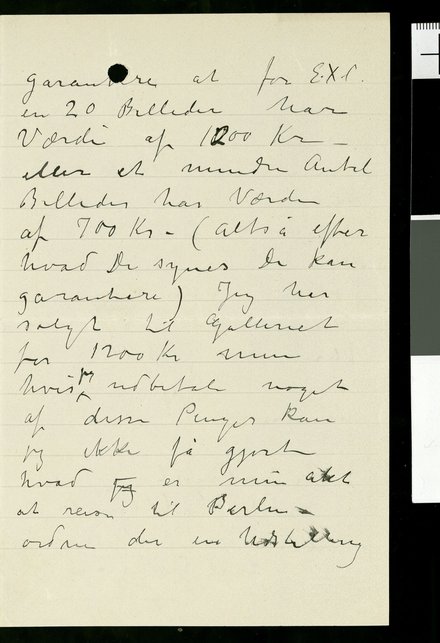 garantere at for E.X.C.
en 20 Billeder har
Værdi af 1200 Kr –
eller et mindre Antal
Billeder har Værdi
af 700 Kr – (altså efter
hvad De synes De kan
garantere) Jeg har
solgt til Galleriet
for 1200 Kr men
hvis jeg udbetale noget
af disse Penger kan
jeg ikke få gjort
hvad jeg er min akt
at reise til Berlin –
ordne der en Udstilling